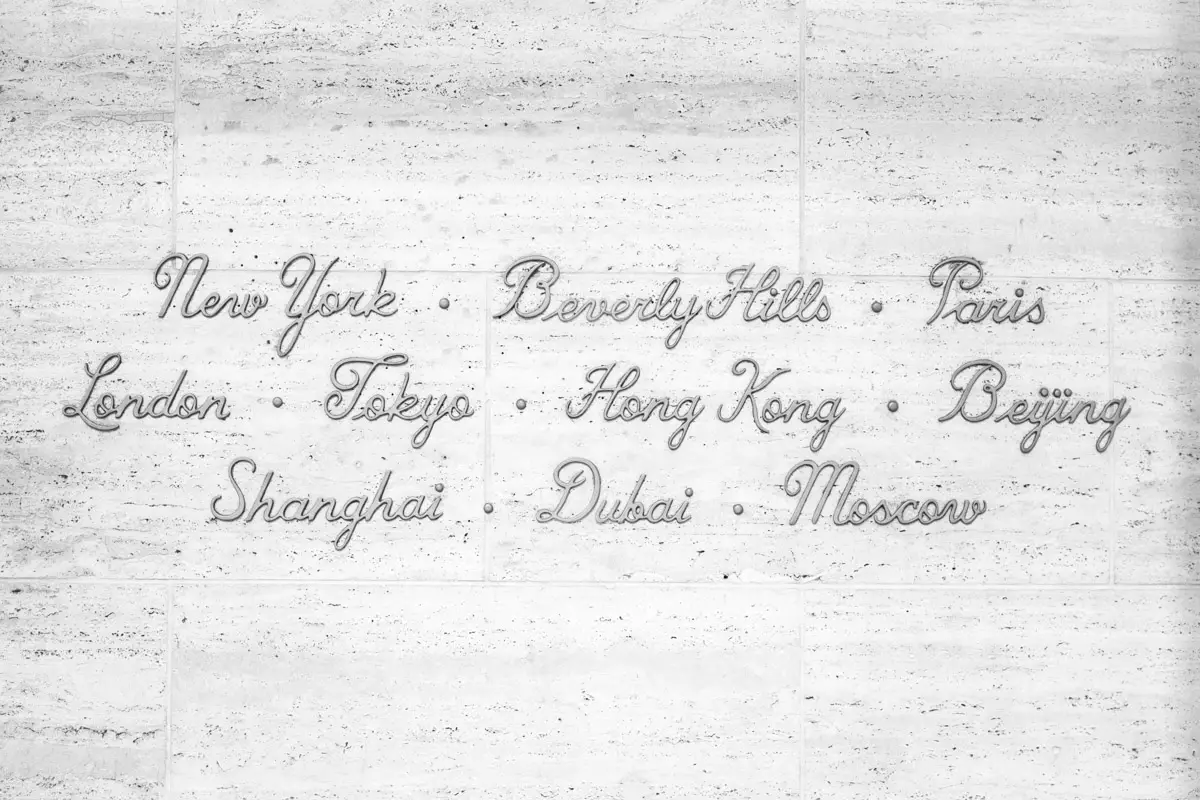 New York • Beverly Hills • Paris
London • Tokyo • Hong Kong • Beijing
Shanghai • Dubai • Moscow